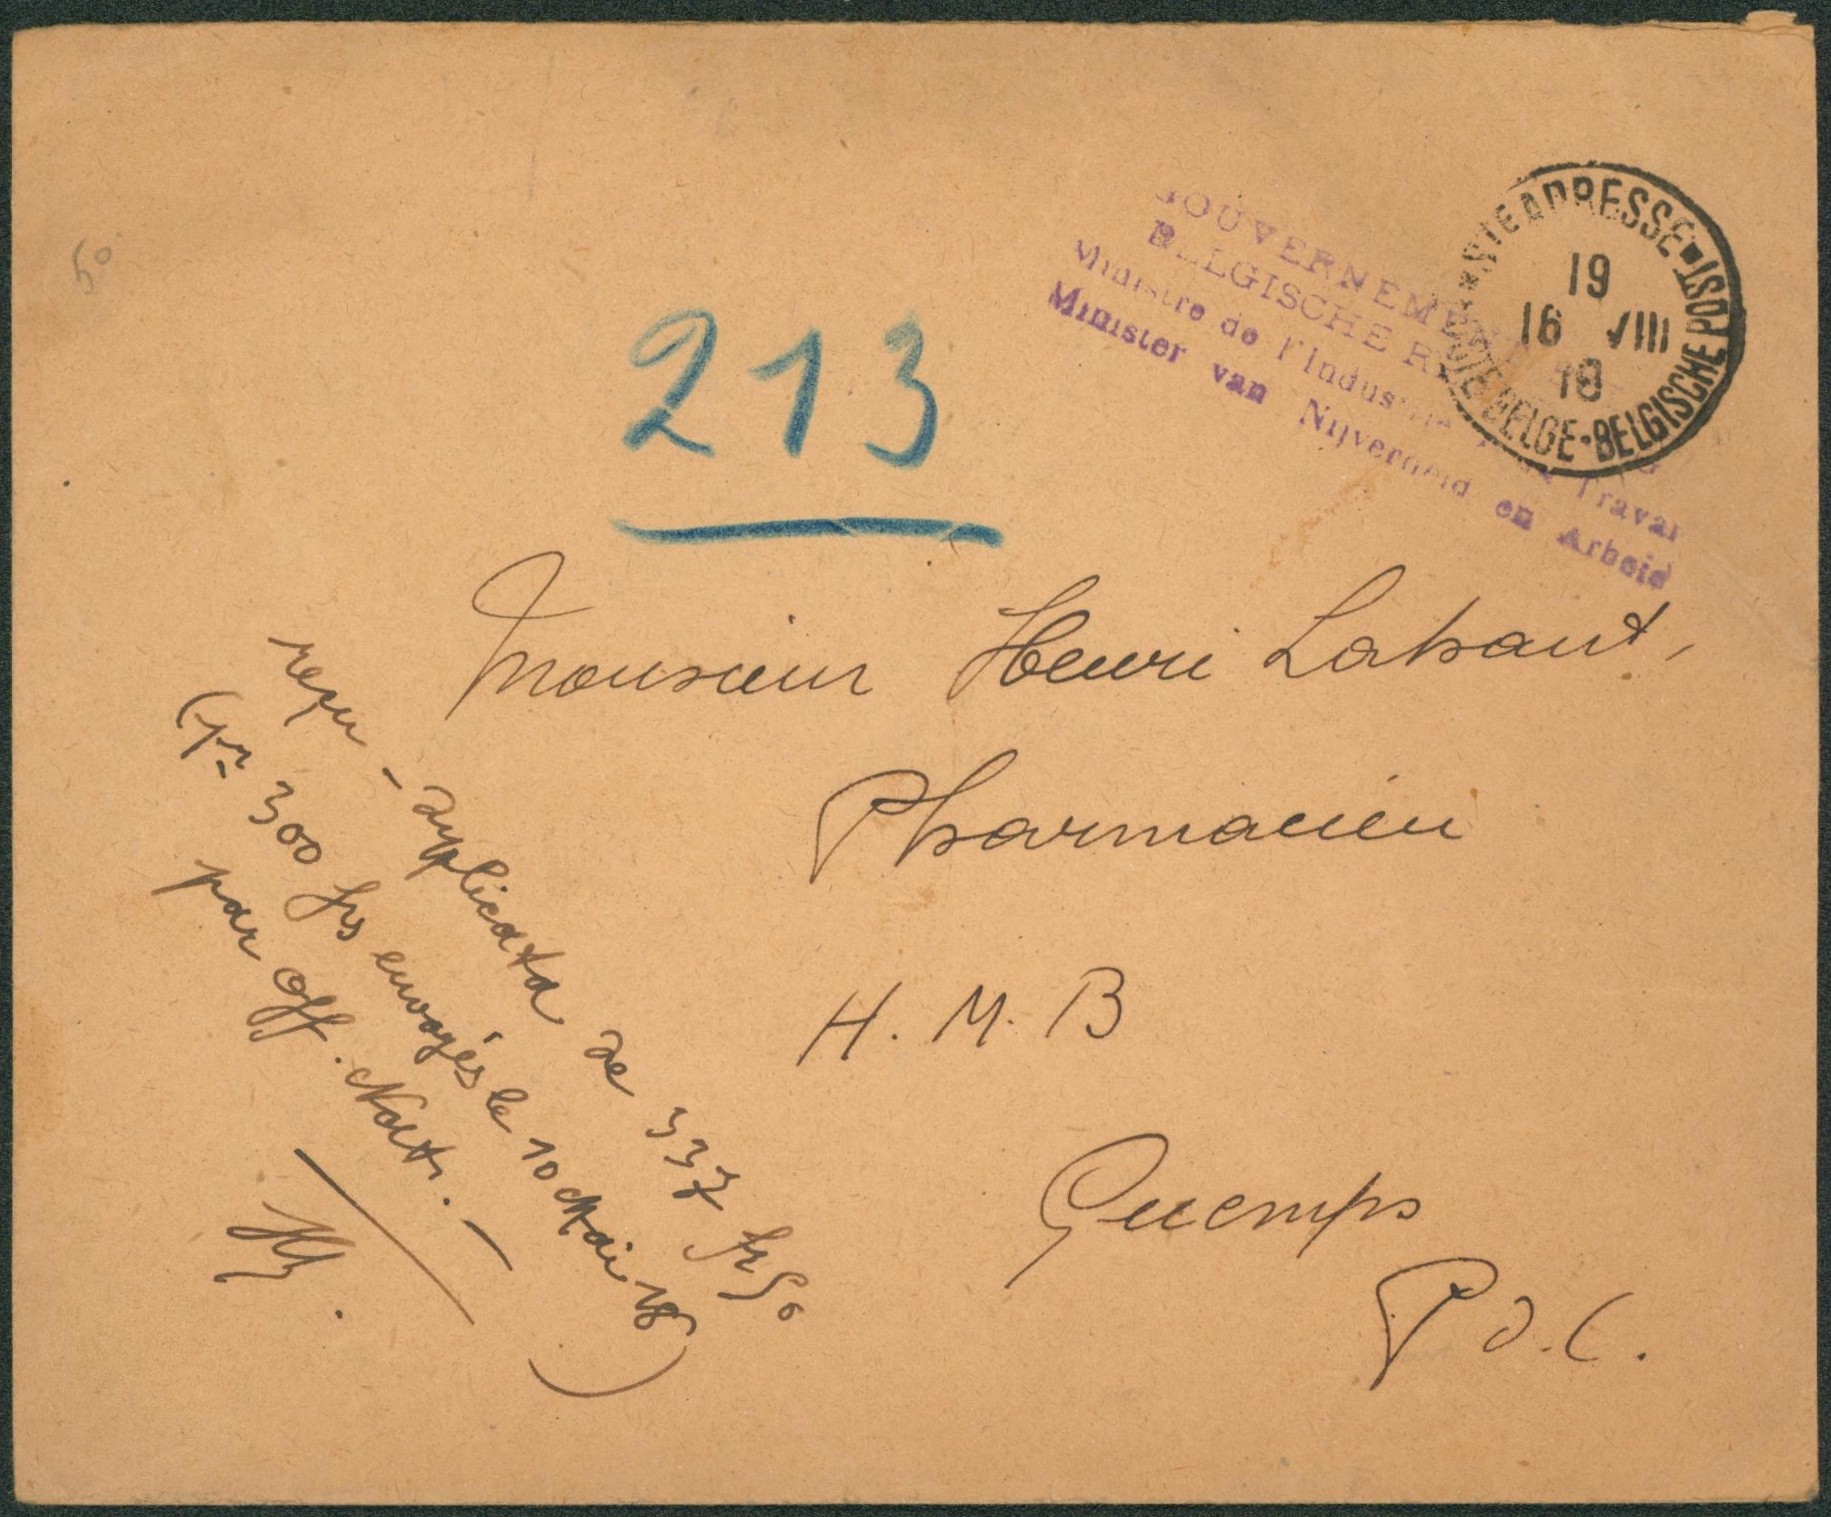 50
213
GOUVERNEMENT
BELGISCHE
Ministre de l'Industrie Travail
Minister van Nijverheid en Arbeid
STE ADRESSE
POSTE BELGE-BELGISCHE POST
19
16 VIII
18
Monsieur Henri Lahaut,
Pharmacien
H. M. B
Guemps
P. d. C.
reçu - duplicata de 337 fr 50
(pr 300 frs envoyés le 10 Mai 18)
par off.